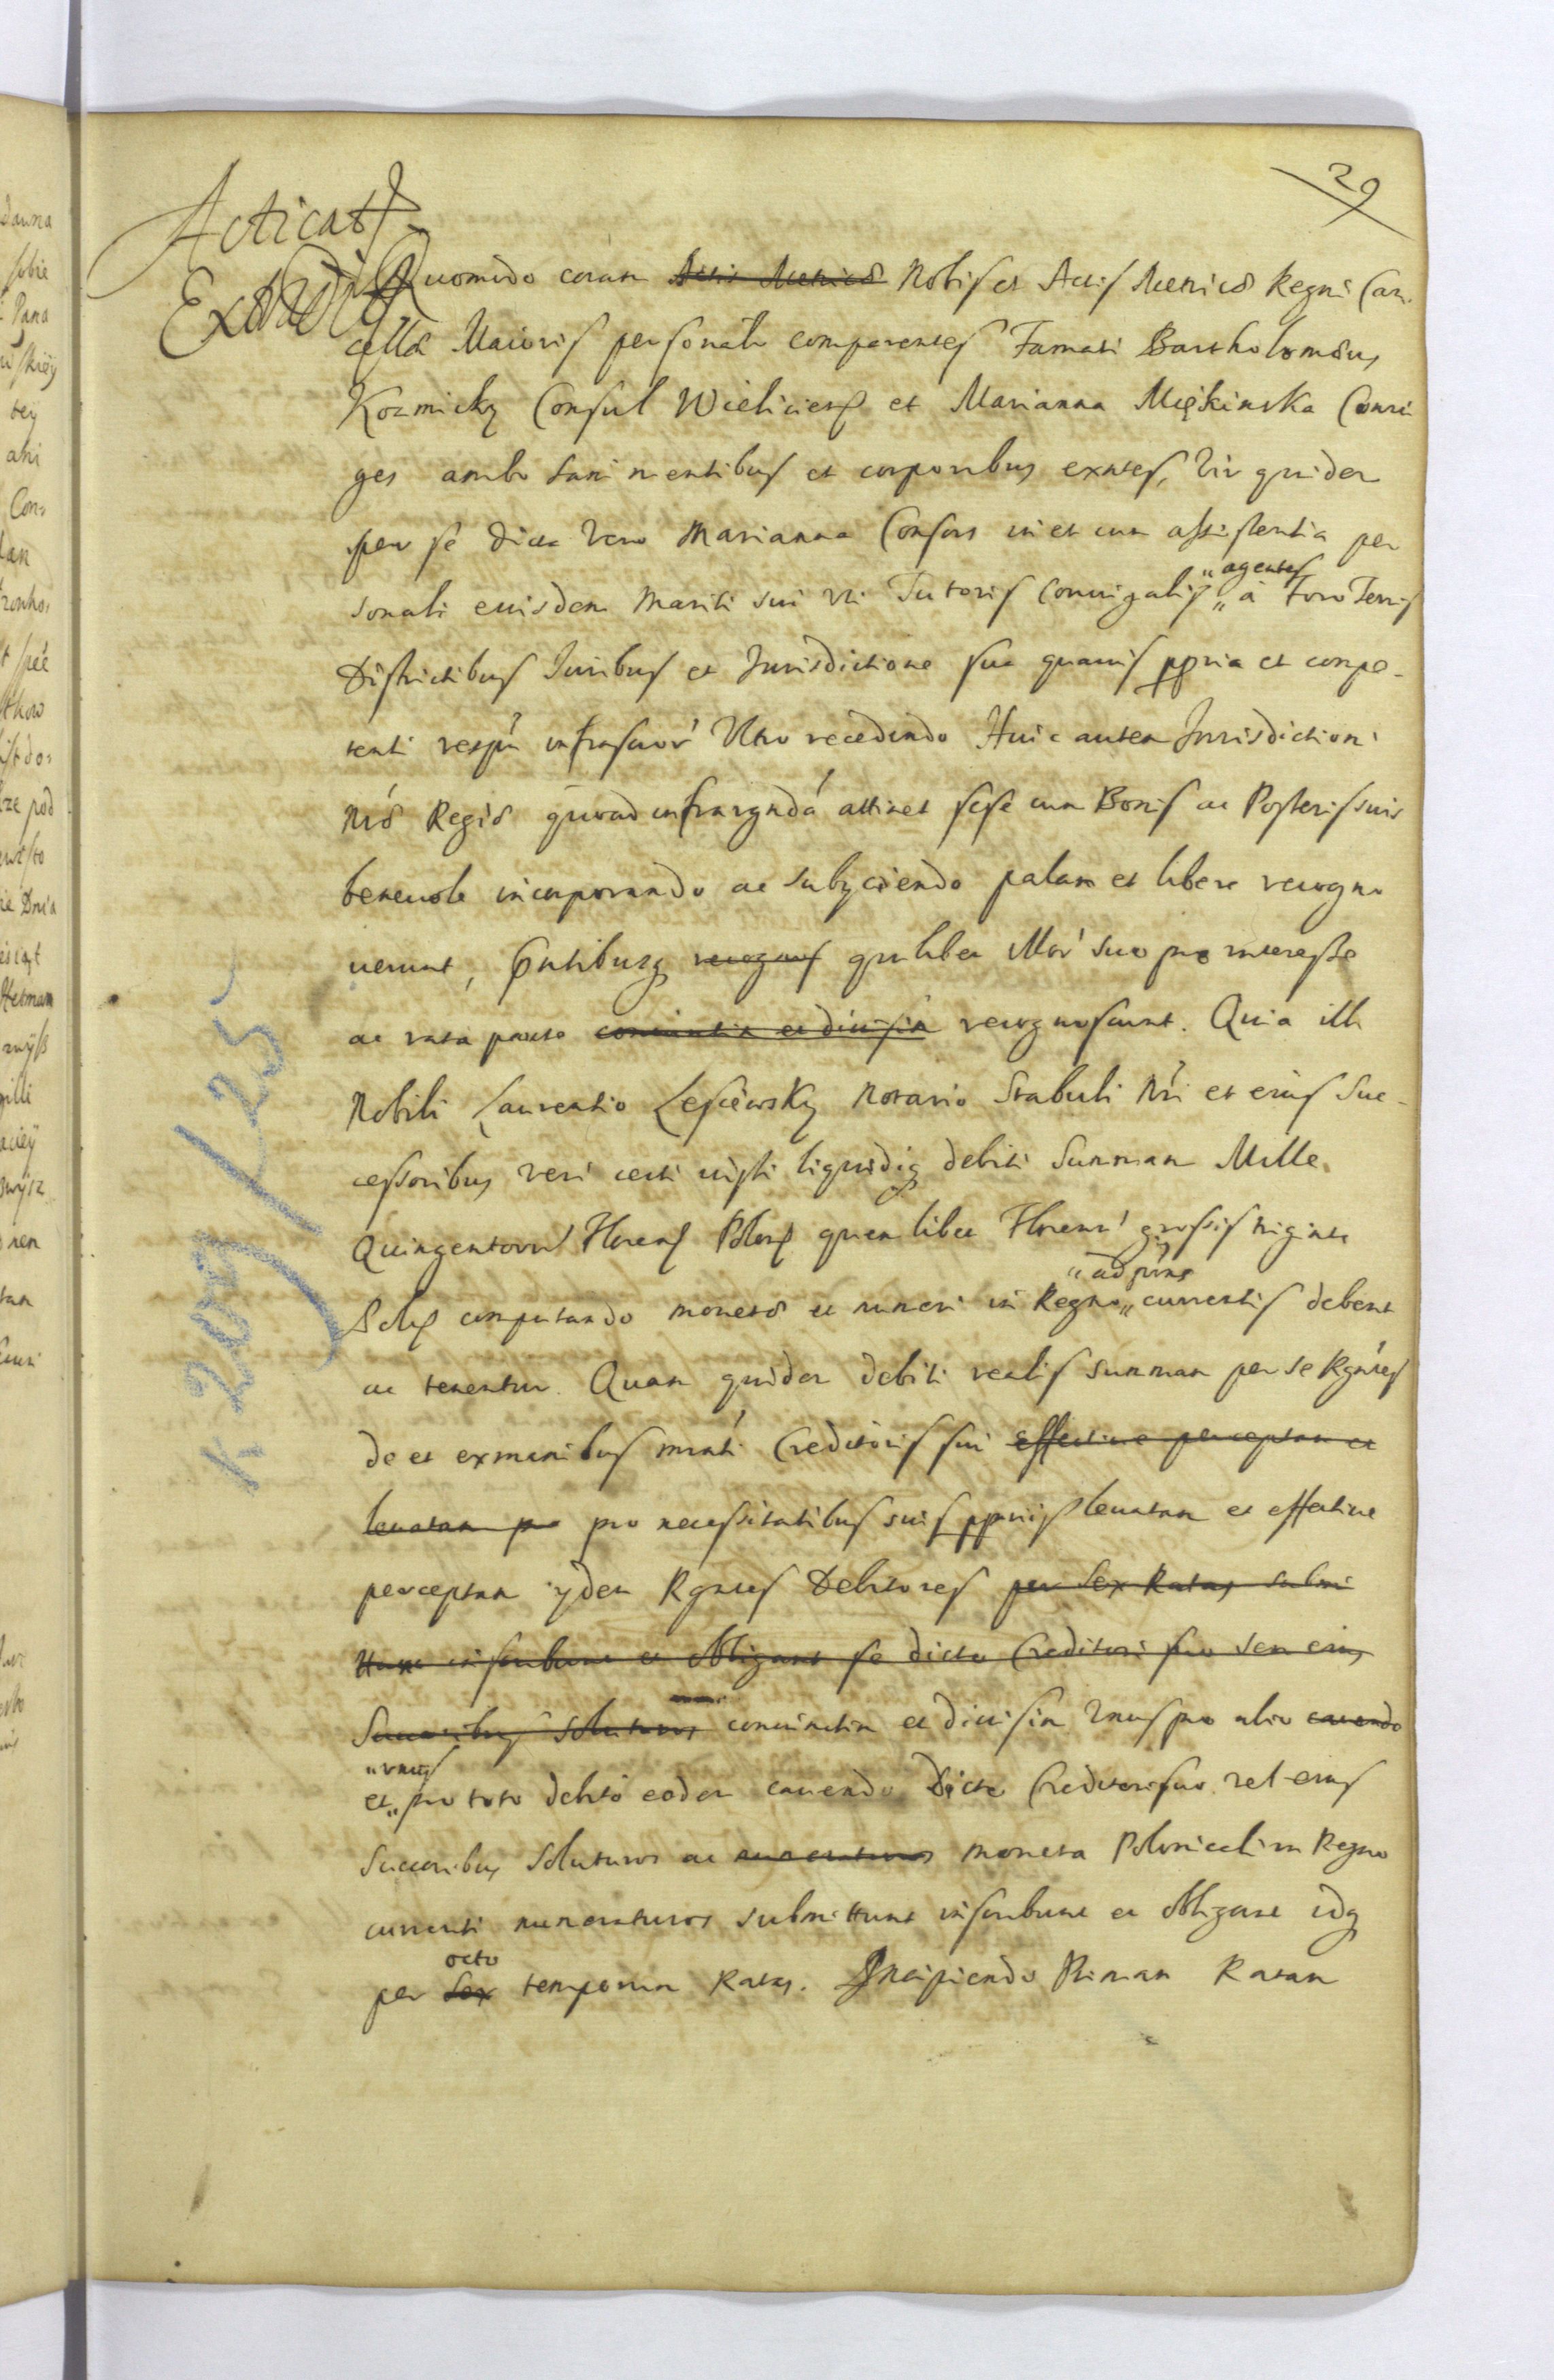 29
Acticat
Extradit
Quomodo coram Actis Metricæ Nobis et Actis Metricæ Regni Can-
cellæ Maioris personalr comparentes Famati Bartholomæus
Kozmicky Consul Wieliciens et Marianna Miękinska Coniu
ges ambo sani mentibus et corporibus exntes, Vir quidem
per se dicta vero Marianna Consors in et cum assistentia per
sonali eiusdem Mariti sui uti Tutoris Coniugalis „agentes„ à Foro Terris
Districtibus Iuribus et Jurisdictione sua quauis ppria et compe-
tenti respu infrascror Ultro recedendo Huic autem Jurisdictioni
Nræ Regiæ quoad infrargnda attinet sese cum Bonis ac Posteris suis
beneuole incorporando ac subyciendo palam et libere recogno
uerunt, Pntibusq recognos quilibet illor suo pro interesse
ac rata parte coniunctim et diuisim recognoscunt. Quia illi
Nobili Laurentio Lesiewsky Notario Stabuli Nri et eius Suc-
cessoribus veri certi iusti liquidiq debiti Summam Mille
Quingentorum Florens Polons quemlibet Florenu grossis triginta
Pols computando monetæ et numeri in Regno „ad præns„ currentis debent
ac tenentur. Quam quidem debiti realis summam per se Rgntes
de et ex manibus mrati Creditoris sui effectiue perceptam et
leuatam pro pro necessitatibus suis pprijs leuatam et effectiue
perceptam ijdem Rgntes Debitores per sex Ratas submi
ttunt inscribunt et obligant se dicto Creditori suo seu eius
Succoribus soluturos coniunctim et diuisim Vnus pro alio cauendo
et „vnus„ pro toto debito eodem cauendo Dicto Creditori suo vel eius
Succoribus soluturos ac numeraturos moneta Polonicali in Regno
currenti numeraturos submittunt inscribunt et obligant idq
per sex octo temporum Ratas. Incipiendo Primam Ratam
K 209/25